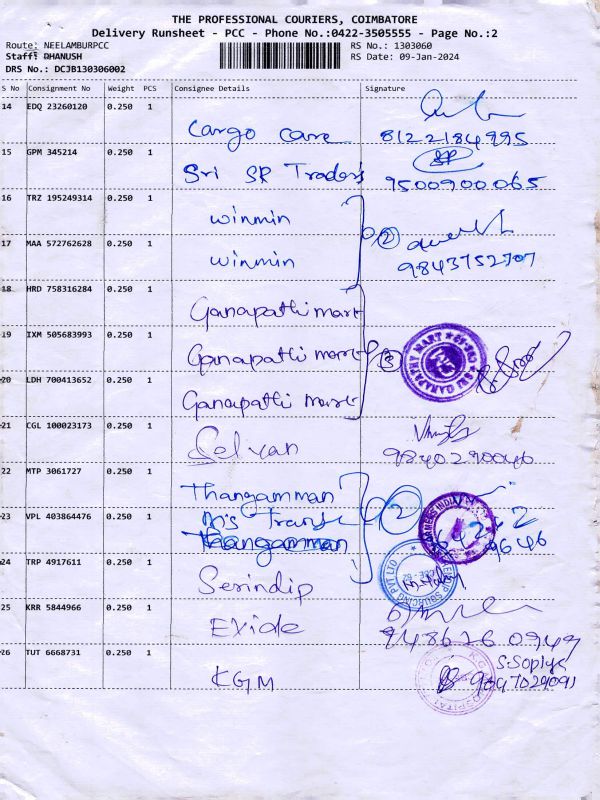 THE PROFESSIONAL COURIERS, COIMBATORE
Delivery Runsheet - PCC - Phone No.:0422-3505555 - Page No.:2
Route: NEELAMBURPCC RS No.: 1303060
Staff: DHANUSH RS Date: 09-Jan-2024
DRS No.: DCJB130306002
S No Consignment No Weight PCS Consignee Details Signature
14 EDQ 23260120 0.250 1
Cargo Care 8122184995
15 GPM 345214 0.250 1 SR
Sri SR Traders 9500900065
16 TRZ 195249314 0.250 1
winmin
17 MAA 572762628 0.250 1 2
winmin 9843752707
18 HRD 758316284 0.250 1
Ganapathi mart
19 IXM 505683993 0.250 1
Ganapathi mart 3 SRI GANAPATHY MART
20 LDH 700413652 0.250 1
Ganapathi mart
21 CGL 100023173 0.250 1
Selvan 9840290046
22 MTP 3061727 0.250 1
Thangamman 2
23 VPL 403864476 0.250 1
Thangamman 9646
24 TRP 4917611 0.250 1 SOURCING PVT LTD
Serindip
25 KRR 5844966 0.250 1
Exide 9486260949
26 TUT 6668731 0.250 1
KGM 9047029091